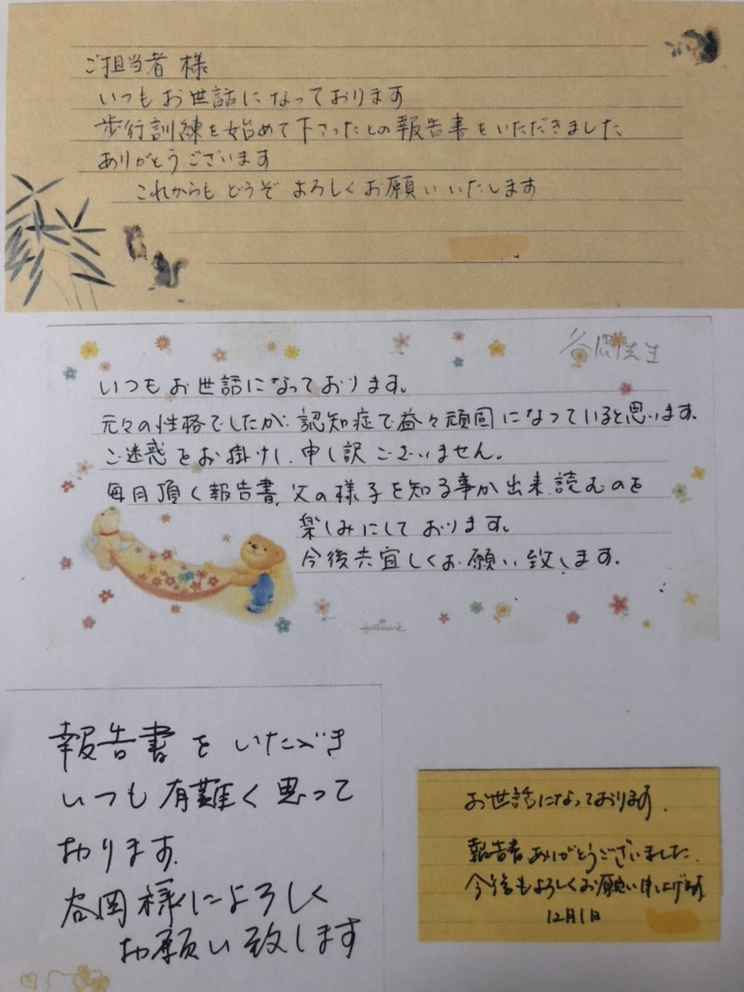 ご担当者 様
いつもお世話になっております
歩行訓練を始めて下さったとの報告書をいただきました
ありがとうございます
これからも どうぞ よろしくお願いいたします
谷岡先生
いつもお世話になっております。
元々の性格でしたが、認知症で益々頑固になっていると思います。
ご迷惑をお掛けし、申し訳ございません。
毎月頂く報告書、父の様子を知る事が出来、読むのを
楽しみにしております。
今後共宜しくお願い致します。
Hallmark
報告書をいただき
いつも有難く思って
おります。
谷岡様によろしく
お願い致します
お世話になっております。
報告書ありがとうございました。
今後もよろしくお願い申し上げます
12月1日